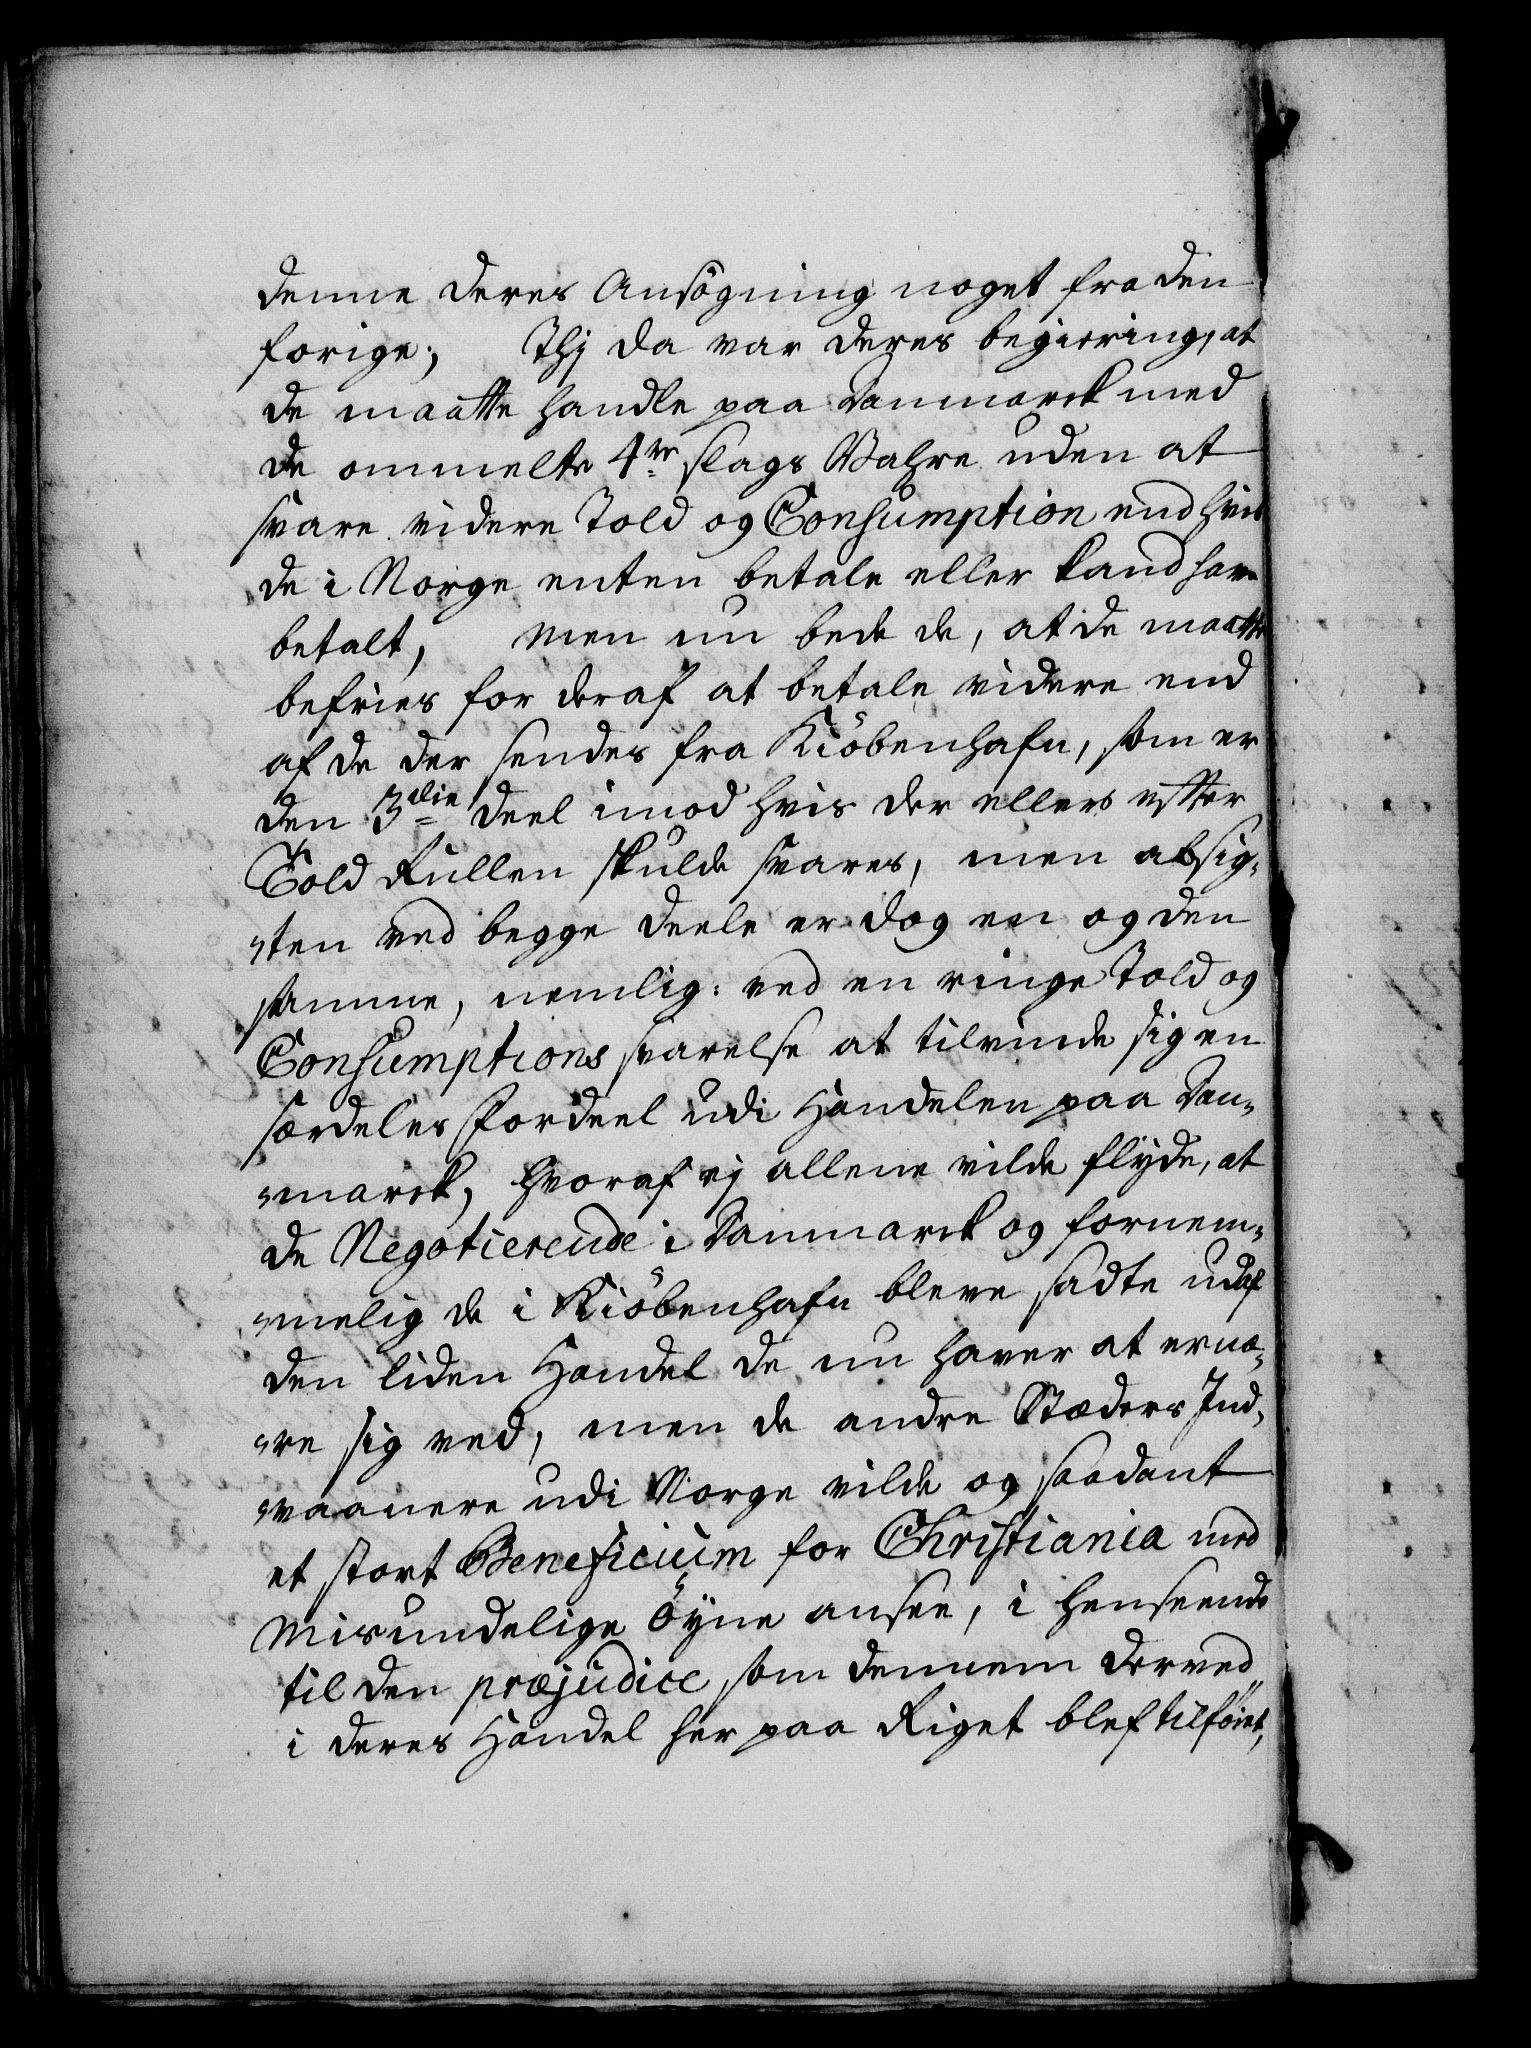 denne deres Ansøgning noget fra den
forige; Thj da var deres begiering, at
de maatte handle paa Danmarck med
de ommelte 4re slags Wahre uden at
svare videre Told og Consumption end hvis
de i Norge enten betale eller kand have
betalt, Men nu bede de, at de maatte
befries for deraf at betale videre end
af de der sendes fra Kiöbenhafn, som er
den 3die deel imod hvis der ellers efter
Told Rullen skulde svares, men absig-
-ten ved begge deele er dog een og den
samme, nemlig: ved en ringe Told og
Consumptions svarelse at tilvinde sig en
særdeles Fordeel udi Handelen paa Dan-
-marck, hvoraf ej allene vilde flyde, at
de Negotierende i Danmarck og fornem-
-melig de i Kiöbenhafn bleve sadte udaf
den liden Handel de nu haver at ernæ-
-re sig ved, men de andre Stæders Ind-
-vaanere udi Norge vilde og saadant
et stort Beneficium for Christiania med
Misundelige öyne ansee, i henseende
til den præjudice som dennem derved
i deres Handel her paa Riget blef tilföiet,